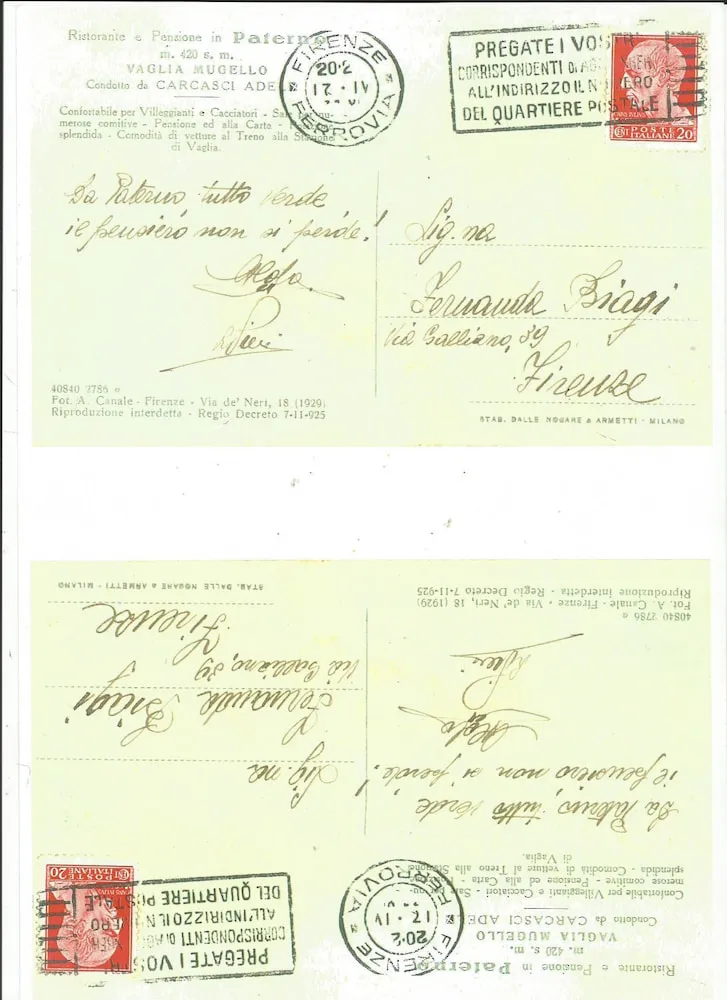 Ristorante e Pensione in Paterno
m. 420 s. m.
VAGLIA MUGELLO
Condotto da CARCASCI ADE
Confortabile per Villeggianti e Cacciatori - Sale per nu-
merose comitive - Pensione ed alla Carta -
splendida - Comodità di vetture al Treno alla Stazione
di Vaglia.
FIRENZE
20·2
17 · IV
FERROVIA
PREGATE I VOSTRI
CORRISPONDENTI DI AGGIUNGERE
ALL'INDIRIZZO IL NUMERO
DEL QUARTIERE POSTALE
CENT POSTE ITALIANE 20
Da Paterno tutto verde
il pensiero non si perde!
Alda
Pieri
Sig.na
Fernanda Biagi
Via Galliano, 39
Firenze
40840 2786 a
Fot. A. Canale - Firenze - Via de' Neri, 18 (1929)
Riproduzione interdetta - Regio Decreto 7-11-925
STAB. DALLE NOGARE & ARMETTI - MILANO
STAB. DALLE NOGARE & ARMETTI - MILANO
Riproduzione interdetta - Regio Decreto 7-11-925
Fot. A. Canale - Firenze - Via de' Neri, 18 (1929)
40840 2786 a
Firenze
Via Galliano, 39
Fernanda Biagi
Sig.na
Pieri
Alda
il pensiero non si perde!
Da Paterno, tutto verde
di Vaglia.
splendida - Comodità di vetture al Treno alla Stazione
merose comitive - Pensione ed alla Carta -
Confortabile per Villeggianti e Cacciatori - Sale per nu-
Condotto da CARCASCI ADE
VAGLIA MUGELLO
m. 420 s. m.
Ristorante e Pensione in Paterno
FERROVIA
17 · IV
20·2
FIRENZE
CENT POSTE ITALIANE 20
DEL QUARTIERE POSTALE
ALL'INDIRIZZO IL NUMERO
CORRISPONDENTI DI AGGIUNGERE
PREGATE I VOSTRI